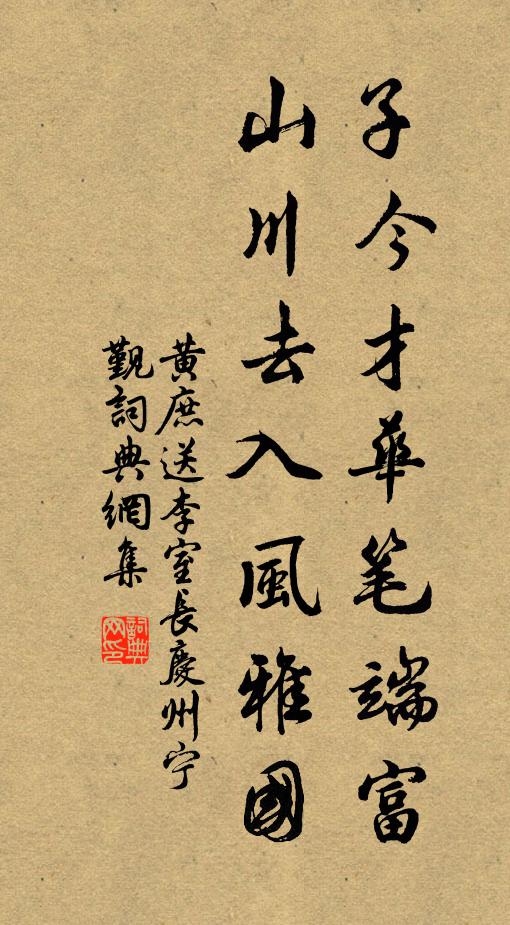 子今才華笔端富
山川去入風雅國
黄庶送李室長慶州宁
觐詞典網集
詞典
网印